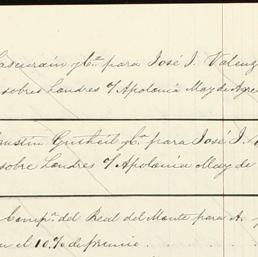 Lascurain y Ca. para José J. Valenz
sobres Londres o/ Apolonia May de Agre
Faustin Gutheil y Ca. para José J.
sobre Londres o/ Apolonia May de
Comp.a del Real del Monte para A. y
en el 10% de premio.